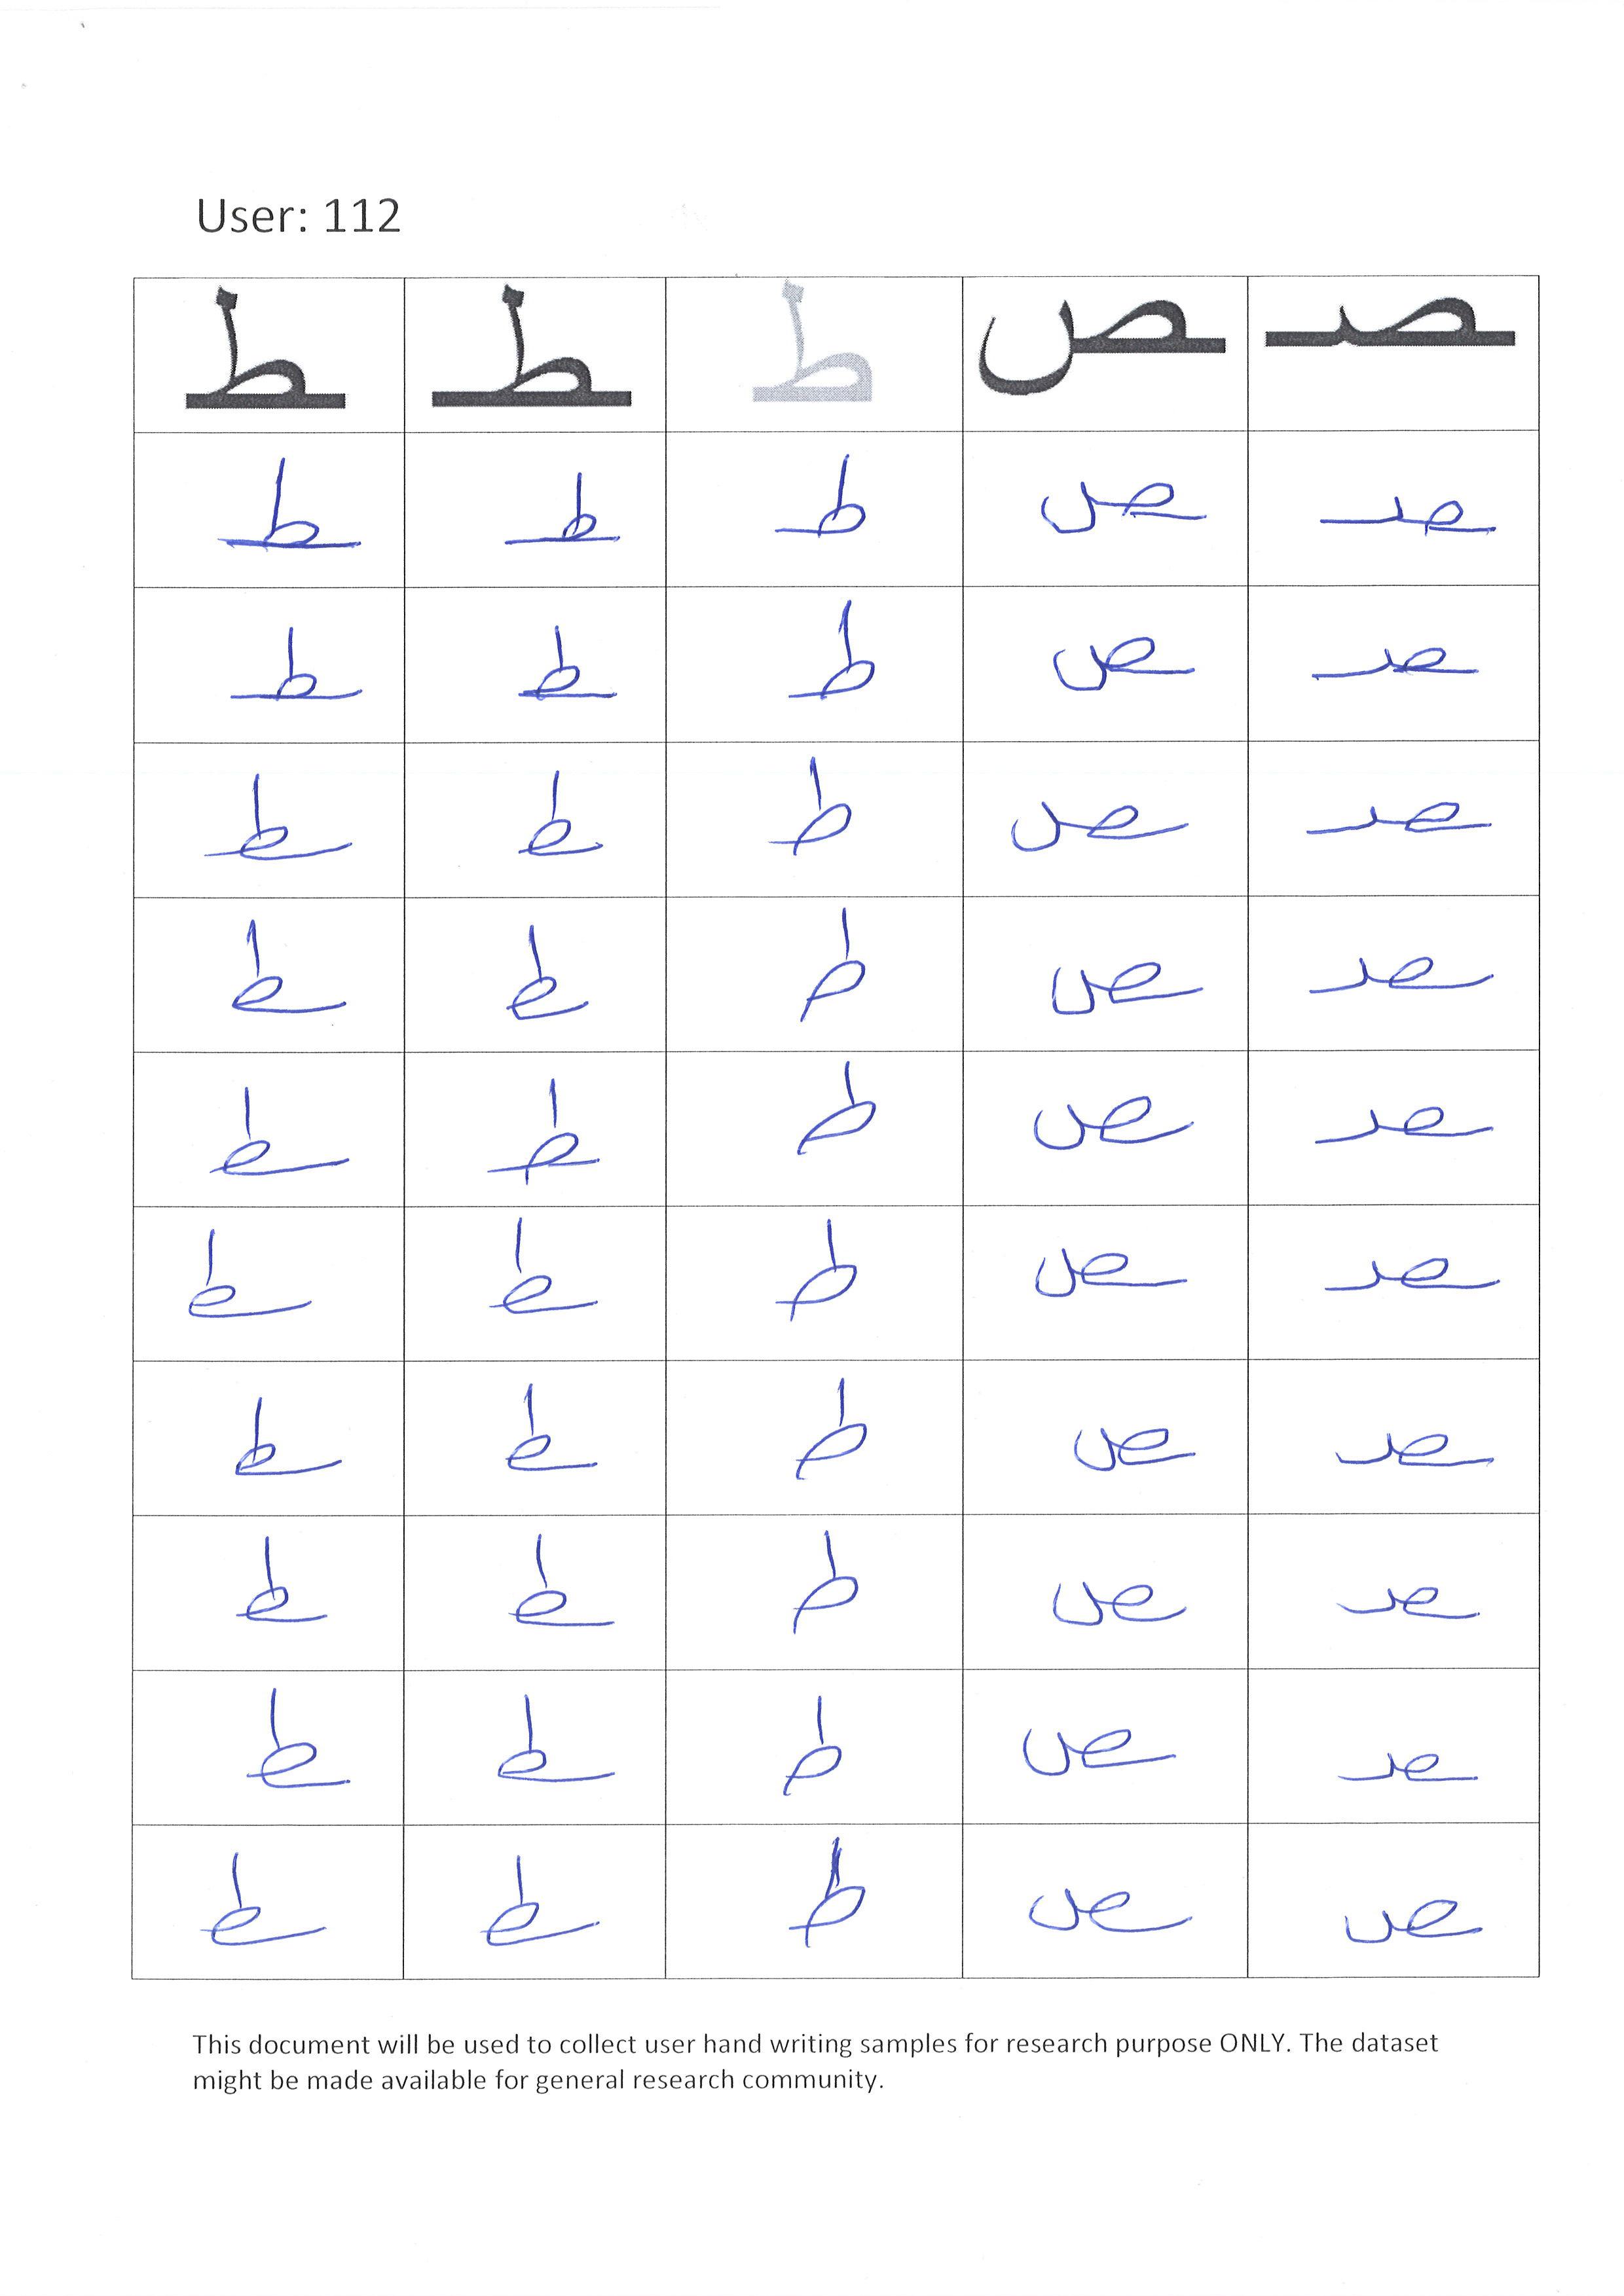 User: 112
ـصـ ـص ط ـطـ ـط
ـصـ ـص ط ـطـ ـط
ـصـ ـص ط ـطـ ـط
ـصـ ـص ط ـطـ ـط
ـصـ ـص ط ـطـ ـط
ـصـ ـص ط ـطـ ـط
ـصـ ـص ط ـطـ ـط
ـصـ ـص ط ـطـ ـط
ـصـ ـص ط ـطـ ـط
ـصـ ـص ط ـطـ ـط
ـص ـص ط ـطـ ـط
This document will be used to collect user hand writing samples for research purpose ONLY. The dataset
might be made available for general research community.